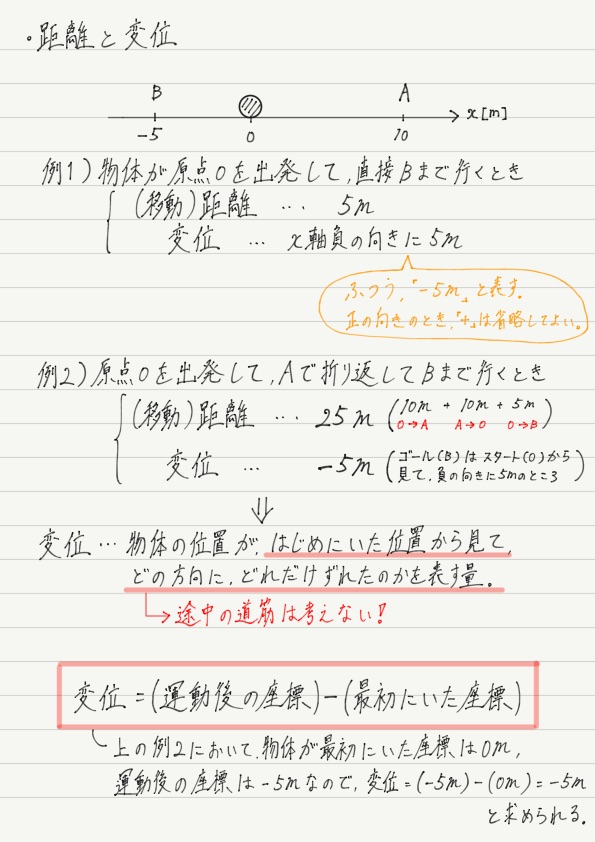 ・距離と変位
B A
x[m]
-5 0 10
例1)物体が原点Oを出発して,直接Bまで行くとき
(移動)距離 … 5m
変位 … x軸負の向きに5m
ふつう,「-5m」と表す。
正の向きのとき,「+」は省略してよい。
例2)原点Oを出発して,Aで折り返してBまで行くとき
(移動)距離 … 25m (10m + 10m + 5m)
O→A A→O O→B
変位 … -5m (ゴール(B)はスタート(O)から
見て,負の向きに5mのところ)
⇓
変位…物体の位置が,はじめにいた位置から見て,
どの方向に,どれだけずれたのかを表す量。
→途中の道筋は考えない!
変位=(運動後の座標)-(最初にいた座標)
上の例2において,物体が最初にいた座標は0m,
運動後の座標は-5mなので,変位=(-5m)-(0m)=-5m
と求められる。